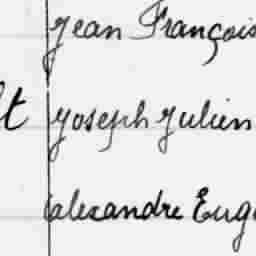 Jean François
Joseph Julien
alexandre Eug